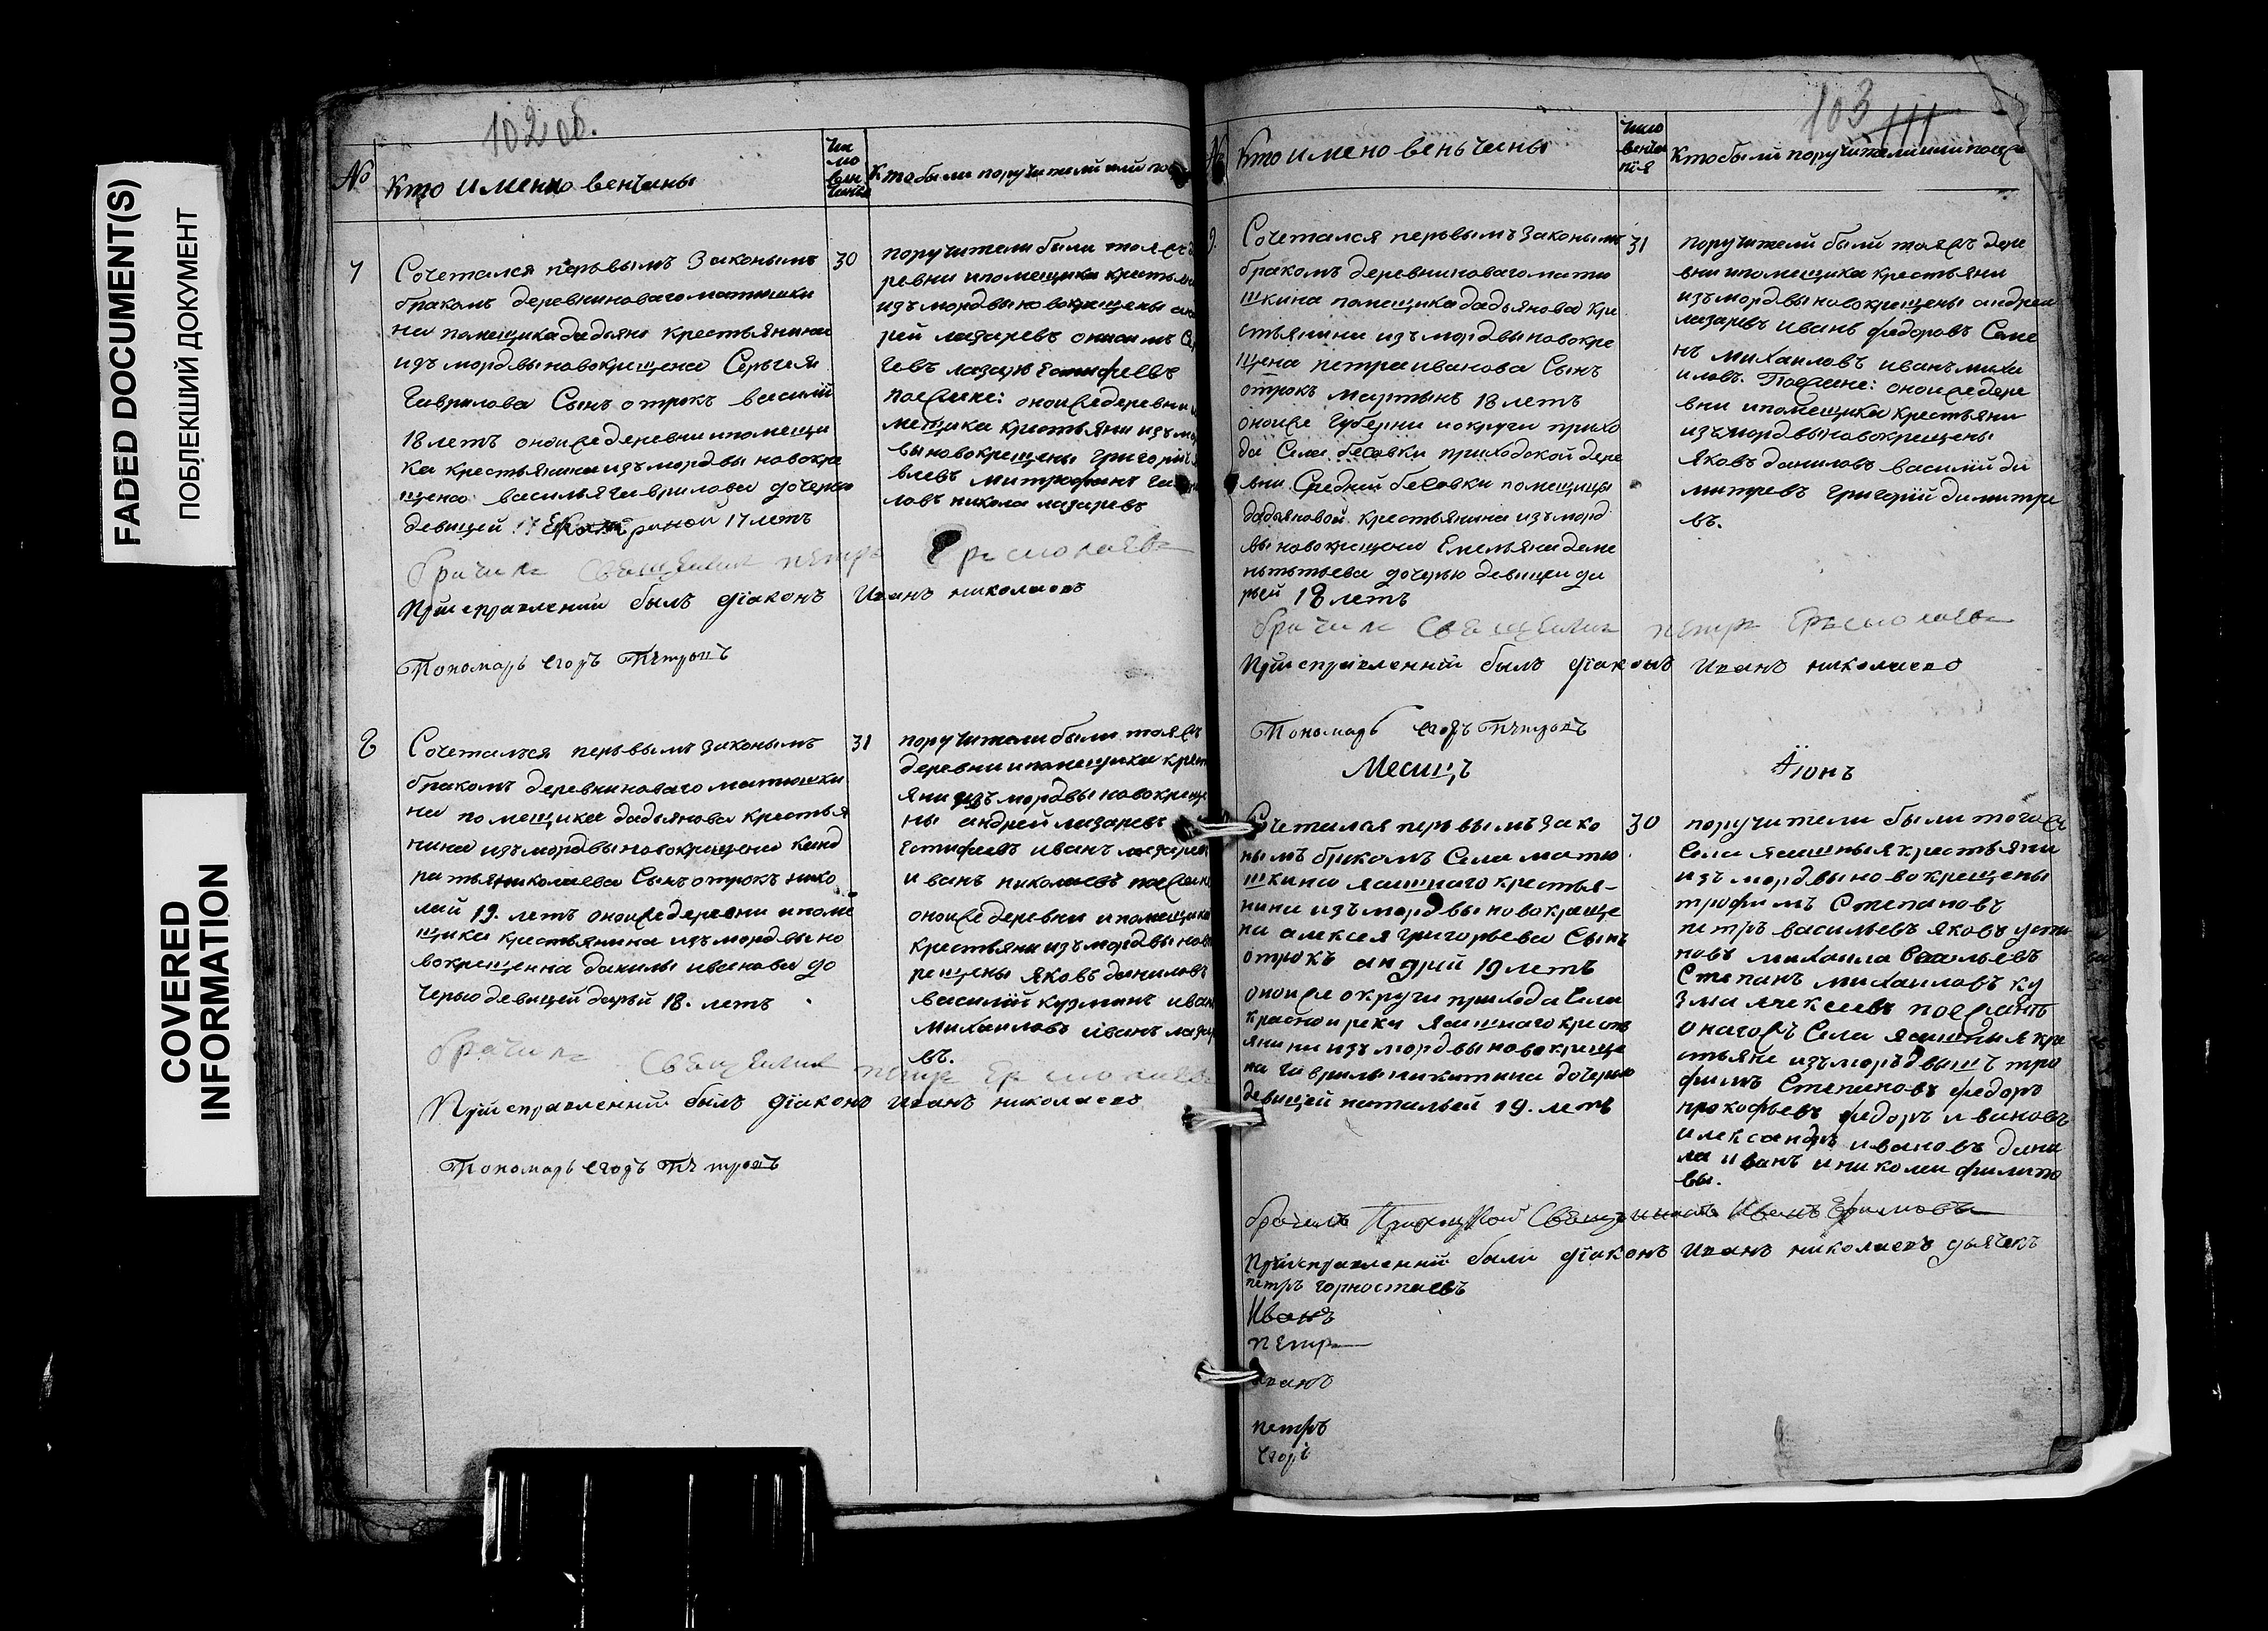 FADED DOCUMENT(S)
ПОБЛЕКШИЙ ДОКУМЕНТ
COVERED
INFORMATION
102 об.
№
Кто именно венчаны
Чи
сло
вен
чания
Кто были поручители или по
7
Сочетался первымъ законымъ
бракомъ деревни новаго матюшки
на помещика дадьяна крестьянина
изъ мордвы новокрещена Сергея
Гаврилова Сынъ отрокъ василий
18 летъ оной же деревни и помещи
ка крестьянина изъ мордвы новокре
щена василья гаврилова дочерью
девицей 17 Екатериной 17 летъ
30
поручители были тоя жъ де
ревни и помещика крестьяни
изъ мордвы новокрещены анд
рей лазаревъ онисимъ Сер
гевъ лазарь
поезжане: оной же деревни и по
мещика крестьяни изъ мор
вы новокрещены григорий
влевъ митрофанъ га
ловъ никола лазаревъ
брачилъ Священникъ петръ Ермолаевъ
При справлении былъ діаконъ Иванъ николаевъ
Пономарь егоръ Петровъ
8
Сочетался перьвымъ законымъ
бракомъ деревни новаго матюшки
на помещика дадьянова крестья
нина изъ мордвы новокрещена конд
ратья николаева Сынъ отрокъ нико
лай 19. летъ оной же деревни и поме
щика крестьянина изъ мордвы но
вокрещенна данилы иванова до
черью девицей дарьей 18. летъ
31
поручители были тоя жъ
деревни и помещика крест
яни изъ мордвы новокреще
ны андрей лазаревъ
иванъ лазарев
иванъ николаевъ поезжане
оной же деревни и помещика
крестьяни изъ мордвы ново
рещены яковъ даниловъ
василий кузминъ иван
михаиловъ иванъ лазаре
въ.
брачилъ Священникъ петръ Ермолаевъ
При справлении былъ діаконъ Иванъ николаевъ
Пономарь егоръ Петровъ
103 111
№
Кто имено веньчаны
Число
венча
ния
Кто были поручители или поезжа
9.
Сочетался перьвымъ законымъ
бракомъ деревни новаго матю
шкина помещика дадьянова кре
стьянина изъ мордвы новокре
щена петра иванова Сынъ
отрокъ мартынъ 18 летъ
оной же Губерни и округи прихо
да Села бесовки приходской дере
вни Средней бесовки помещицы
дадьяновой крестьянина изъ морд
вы новокрещена Емельяна деме
нтьева дочерью девицей да
рьей 18 летъ
31
поручители были тоя жъ дере
вни и помещика крестьяни
изъ мордвы новокрещены андреи
лазаревъ иванъ федоровъ Семе
нъ михаиловъ иванъ миха
иловъ. Поезжане: оной же дере
вни и помещика крестьяни
изъ мордвы новокрещены
яковъ даниловъ василий ди
митревъ григорий димитре
въ.
брачилъ Священникъ петръ Ермолаевъ
При справлении былъ діаконъ Иванъ николаевъ
Пономарь егоръ Петровъ
Месяцъ Июнь
Сочетался перьвымъ зако
нымъ бракомъ Села матю
шкина ясашнаго крестья-
нина изъ мордвы новокреще
на алексея григорьева Сынъ
отрокъ андрей 19 летъ
оной же округи прихода Села
красной реки ясашнаго кресть
янина изъ мордвы новокреще
на гаврилы никитина дочерью
девицей натальей 19. летъ
30
поручители были того жъ
Села ясашныя крестьяни
изъ мордвы новокрещены
трофимъ Степановъ
петръ васильевъ яковъ усти
новъ михаила васильевъ
Степанъ михаиловъ ку
зма алексеевъ поезжанъ
онаго жъ Села ясашныя кре
стьяне изъ моръдвы тро
фимъ Степановъ федоръ
прокофьевъ федоръ ивановъ
александръ ивановъ дани
ла иванъ и николай филипо
вы.
брачилъ Приходской Священникъ Иванъ Ефимовъ
При справлении были діаконъ Иванъ николаевъ дьячекъ
петръ горностаевъ
Иванъ
петръ
Иванъ
петръ
егоръ